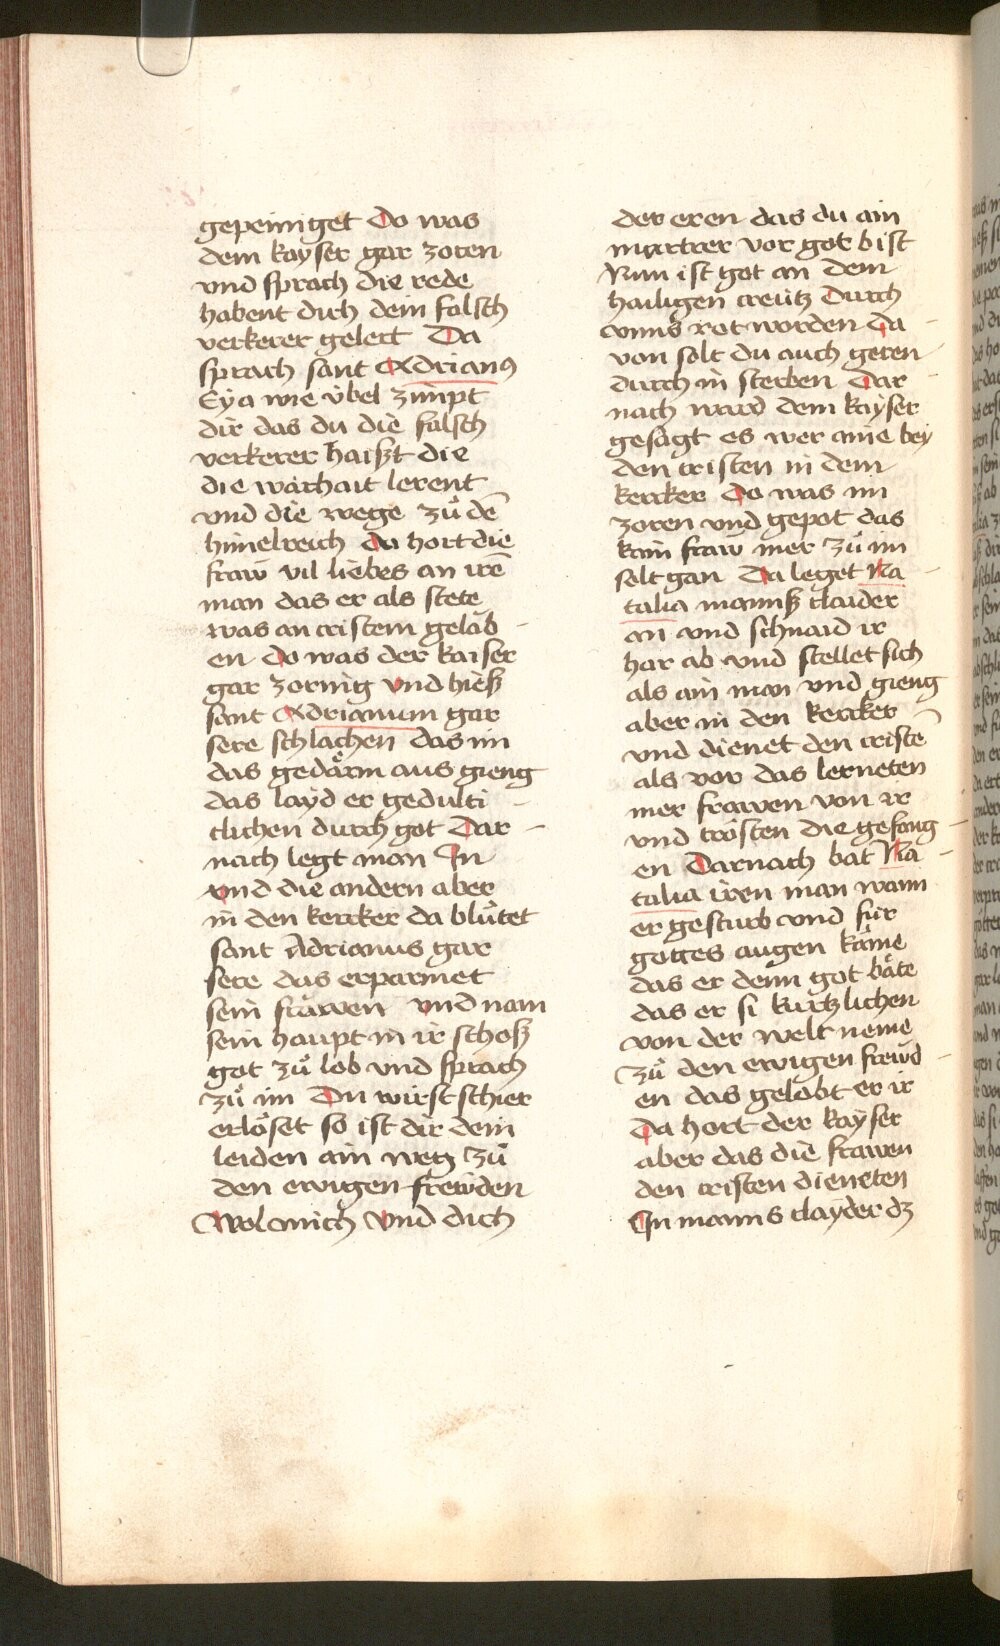 gepeiniget Do was
dem kayser gar zoren
vnd sprach die rede
habent dich dein falsch
verkerer gelert Da
sprach sant Adrianus
Eya wie übel zimpt
dir das du die falsch
verkerer haißt die
die warhait lerent
vnd die wege zů dē
himelreich da hort die
fraw vil liebes an irē
man das er als stete
was an cristem gelab-
en do was der kaiser
gar zornig vnd hieß
sant Adrianum gar
sere schlachen das im
das gedärm aus gieng
das layd er gedulti-
clichen durch got Dar-
nach legt man In
vnd die andern aber
in den kercker da blůtet
sant Adrianus gar
sere das erparmet
sein frawen vnd nam
sein haupt in ir schoß
got zů lob vnd sprach
zů im Du wirst schier
erlöset so ist dir dein
leiden ain weg zů
den ewigen frewden
Wol mich vnd dich
der eren das du ain
martrer vor got bist
Nun ist got an dem
hailigen creütz durch
vnns rot worden da-
von solt du auch geren
durch in sterben Dar-
nach ward dem kayser
gesagt es wer amie bey
den cristen in dem
kercker Do was im
zoren vnd gepot das
kain fraw mer zů im
solt gan Da leget Na-
talia mannß claider
an vnd schnaid ir
har ab vnd stellet sich
als ain man vnd gieng
aber in den kercker
vnd dienet den cristē
als vor das lerneten
mer frawen von ir
vnd trösten die gefang-
en Darnach bat Na-
talia iren man wann
er gesturb vnd für
gottes augen käme
das er denn got bäte
das er si kurtzlichen
von der welt neme
zů den ewigen frewd-
en das gelobt er ir
Da hort der kayser
aber das die frawen
den cristen dieneten
In manns clayder dz